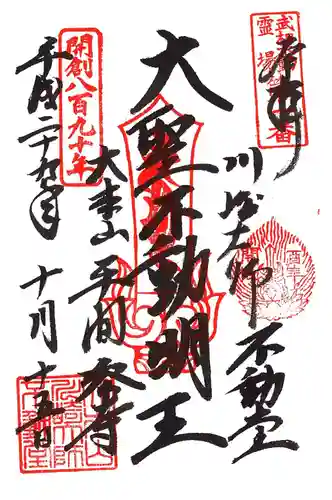 奉拝
川崎大師 不動堂
大聖不動明王
大本山 平間寺
平成二十九年 十月十五日
開創八百九十年
霊場